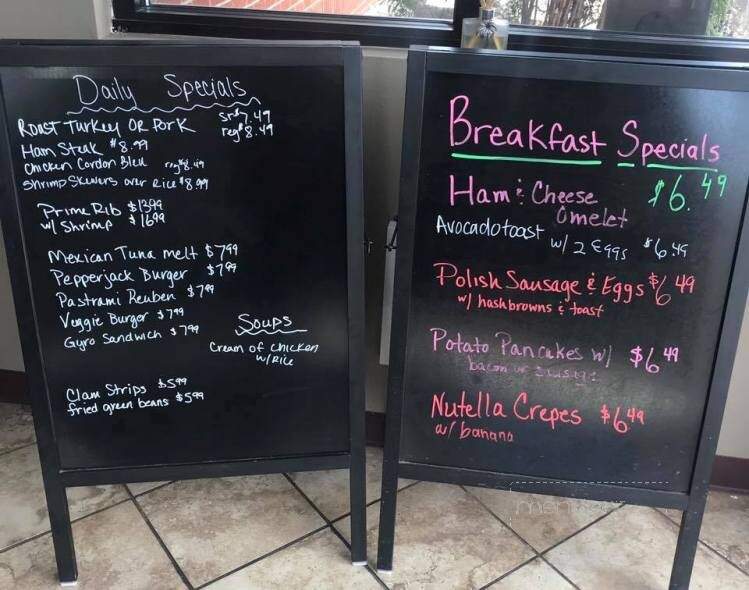 Daily Specials
Roast Turkey OR Pork sr$7.49
reg$8.49
Ham Steak $8.99
Chicken Cordon Bleu reg$8.49
Shrimp Skewers over Rice $8.99
Prime Rib $13.99
w/ Shrimp $16.99
Mexican Tuna melt $7.99
Pepperjack Burger $7.99
Pastrami Reuben $7.99
Veggie Burger $7.99
Gyro Sandwich $7.99
Soups
Cream of chicken
w/Rice
Clam Strips $5.99
fried green beans $5.99
Breakfast Specials
Ham & Cheese $6.49
Omelet
Avocado toast
w/ 2 Eggs $6.49
Polish Sausage & Eggs $6.49
w/ hashbrowns & toast
Potato Pancakes w/ $6.49
bacon or sausage
Nutella Crepes $6.49
w/ banana